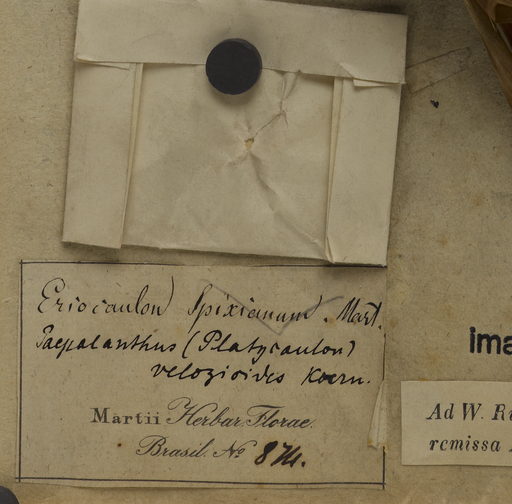 Eriocaulon Spixianum. Mart.
Paepalanthus (Platycaulon)
velozioides Koern.
Martii Herbar. Florae
Brasil. No 874.
ima
Ad W. Ru
remissa